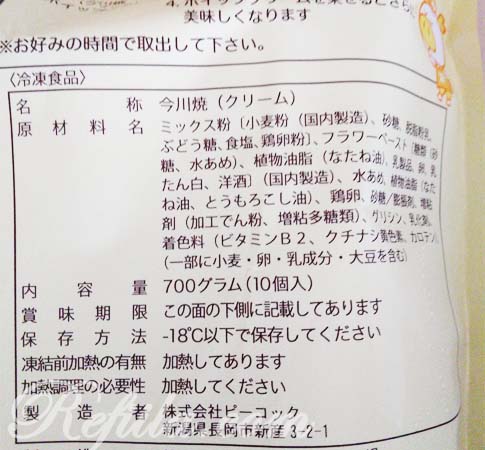 4. ホイップクリームを乗せるとさらに
美味しくなります
※お好みの時間で取出して下さい。
〈冷凍食品〉
名 称 今川焼（クリーム）
原 材 料 名 ミックス粉〔小麦粉（国内製造）、砂糖、脱脂粉乳、
ぶどう糖、食塩、鶏卵粉〕、フラワーペースト〔糖類（砂
糖、水あめ）、植物油脂（なたね油）、乳製品、卵、乳
たん白、洋酒〕（国内製造）、水あめ、植物油脂（なた
ね油、とうもろこし油）、鶏卵、砂糖／膨脹剤、増粘
剤（加工でん粉、増粘多糖類）、グリシン、乳化剤、
着色料（ビタミンＢ２、クチナシ黄色素、カロテン）、
（一部に小麦・卵・乳成分・大豆を含む）
内 容 量 700グラム（10個入）
賞 味 期 限 この面の下側に記載してあります
保 存 方 法 -18℃以下で保存してください
凍結前加熱の有無 加熱してあります
加熱調理の必要性 加熱してください
製 造 者 株式会社ピーコック
新潟県長岡市新産3-2-1